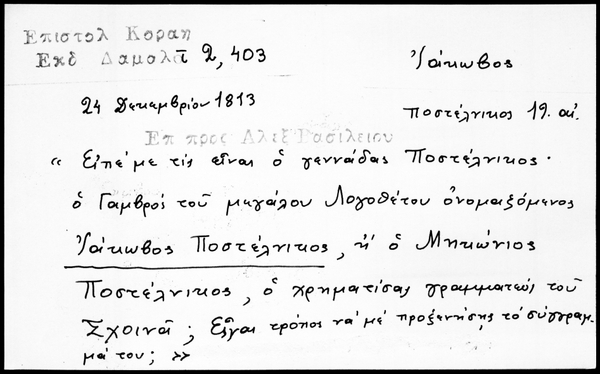 Επιστολ Κοραη
Εκδ Δαμαλᾶ τ 2, 403
Ἰάκωβος
24 Δεκεμβρίου 1813
Ποστέλνικος 19. αἰ.
Επ προς Αλεξ Βασιλειου
« Εἰπέ με τίς εἶναι ὁ γεννάδας Ποστέλνικος·
ὁ Γαμβρός τοῦ μεγάλου Λογοθέτου ὀνομαζόμενος
Ἰάκωβος Ποστέλνικος, ἤ ὁ Μηκώνιος
Ποστέλνικος, ὁ χρηματίσας γραμματεύς τοῦ
Σχοινᾶ; Εἶναι τρόπος νά μέ προξενήσῃς τό σύγγραμ-
μά του; »